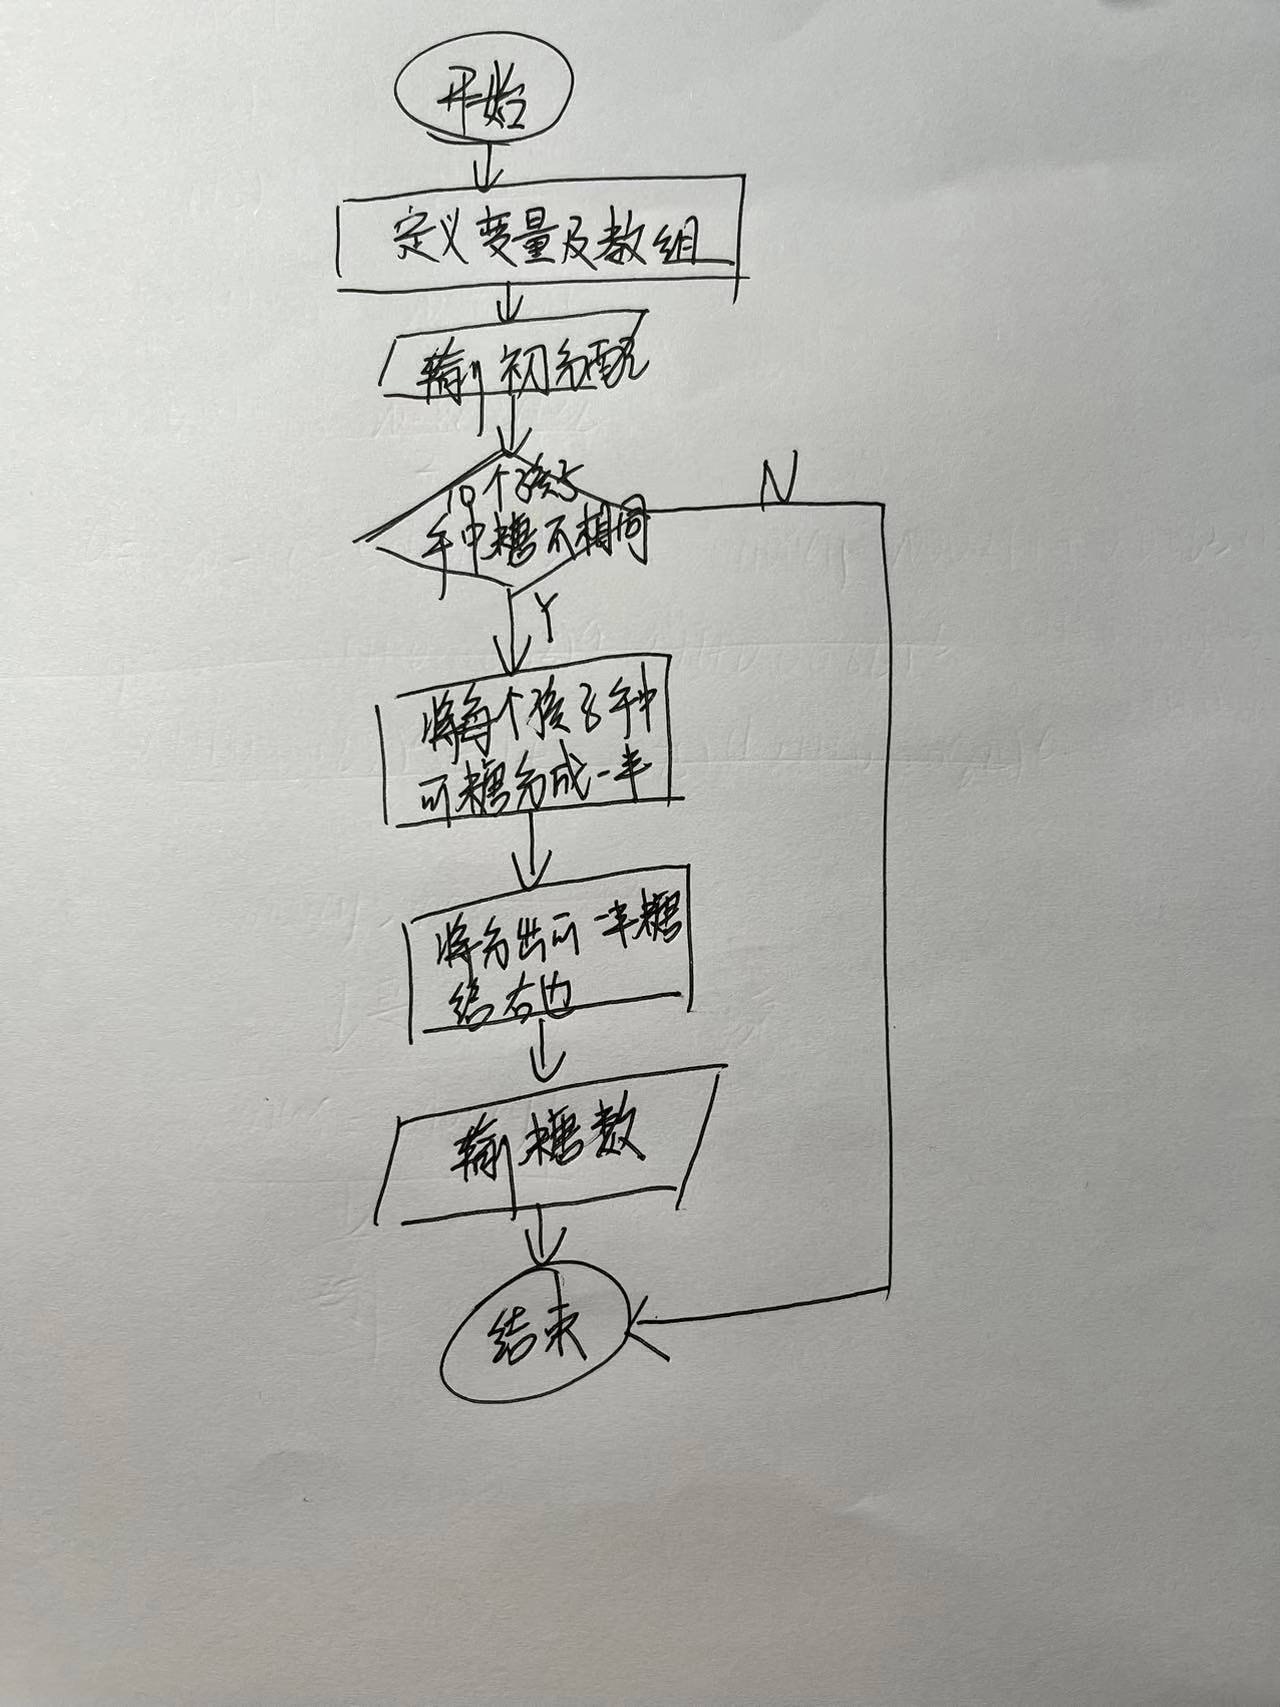 开始
定义变量及数组
输 初分配
10个孩子
手中糖不相同
N
Y
将每个孩子手中
的糖分成一半
将分出的一半糖
给右边
输 糖数
结束